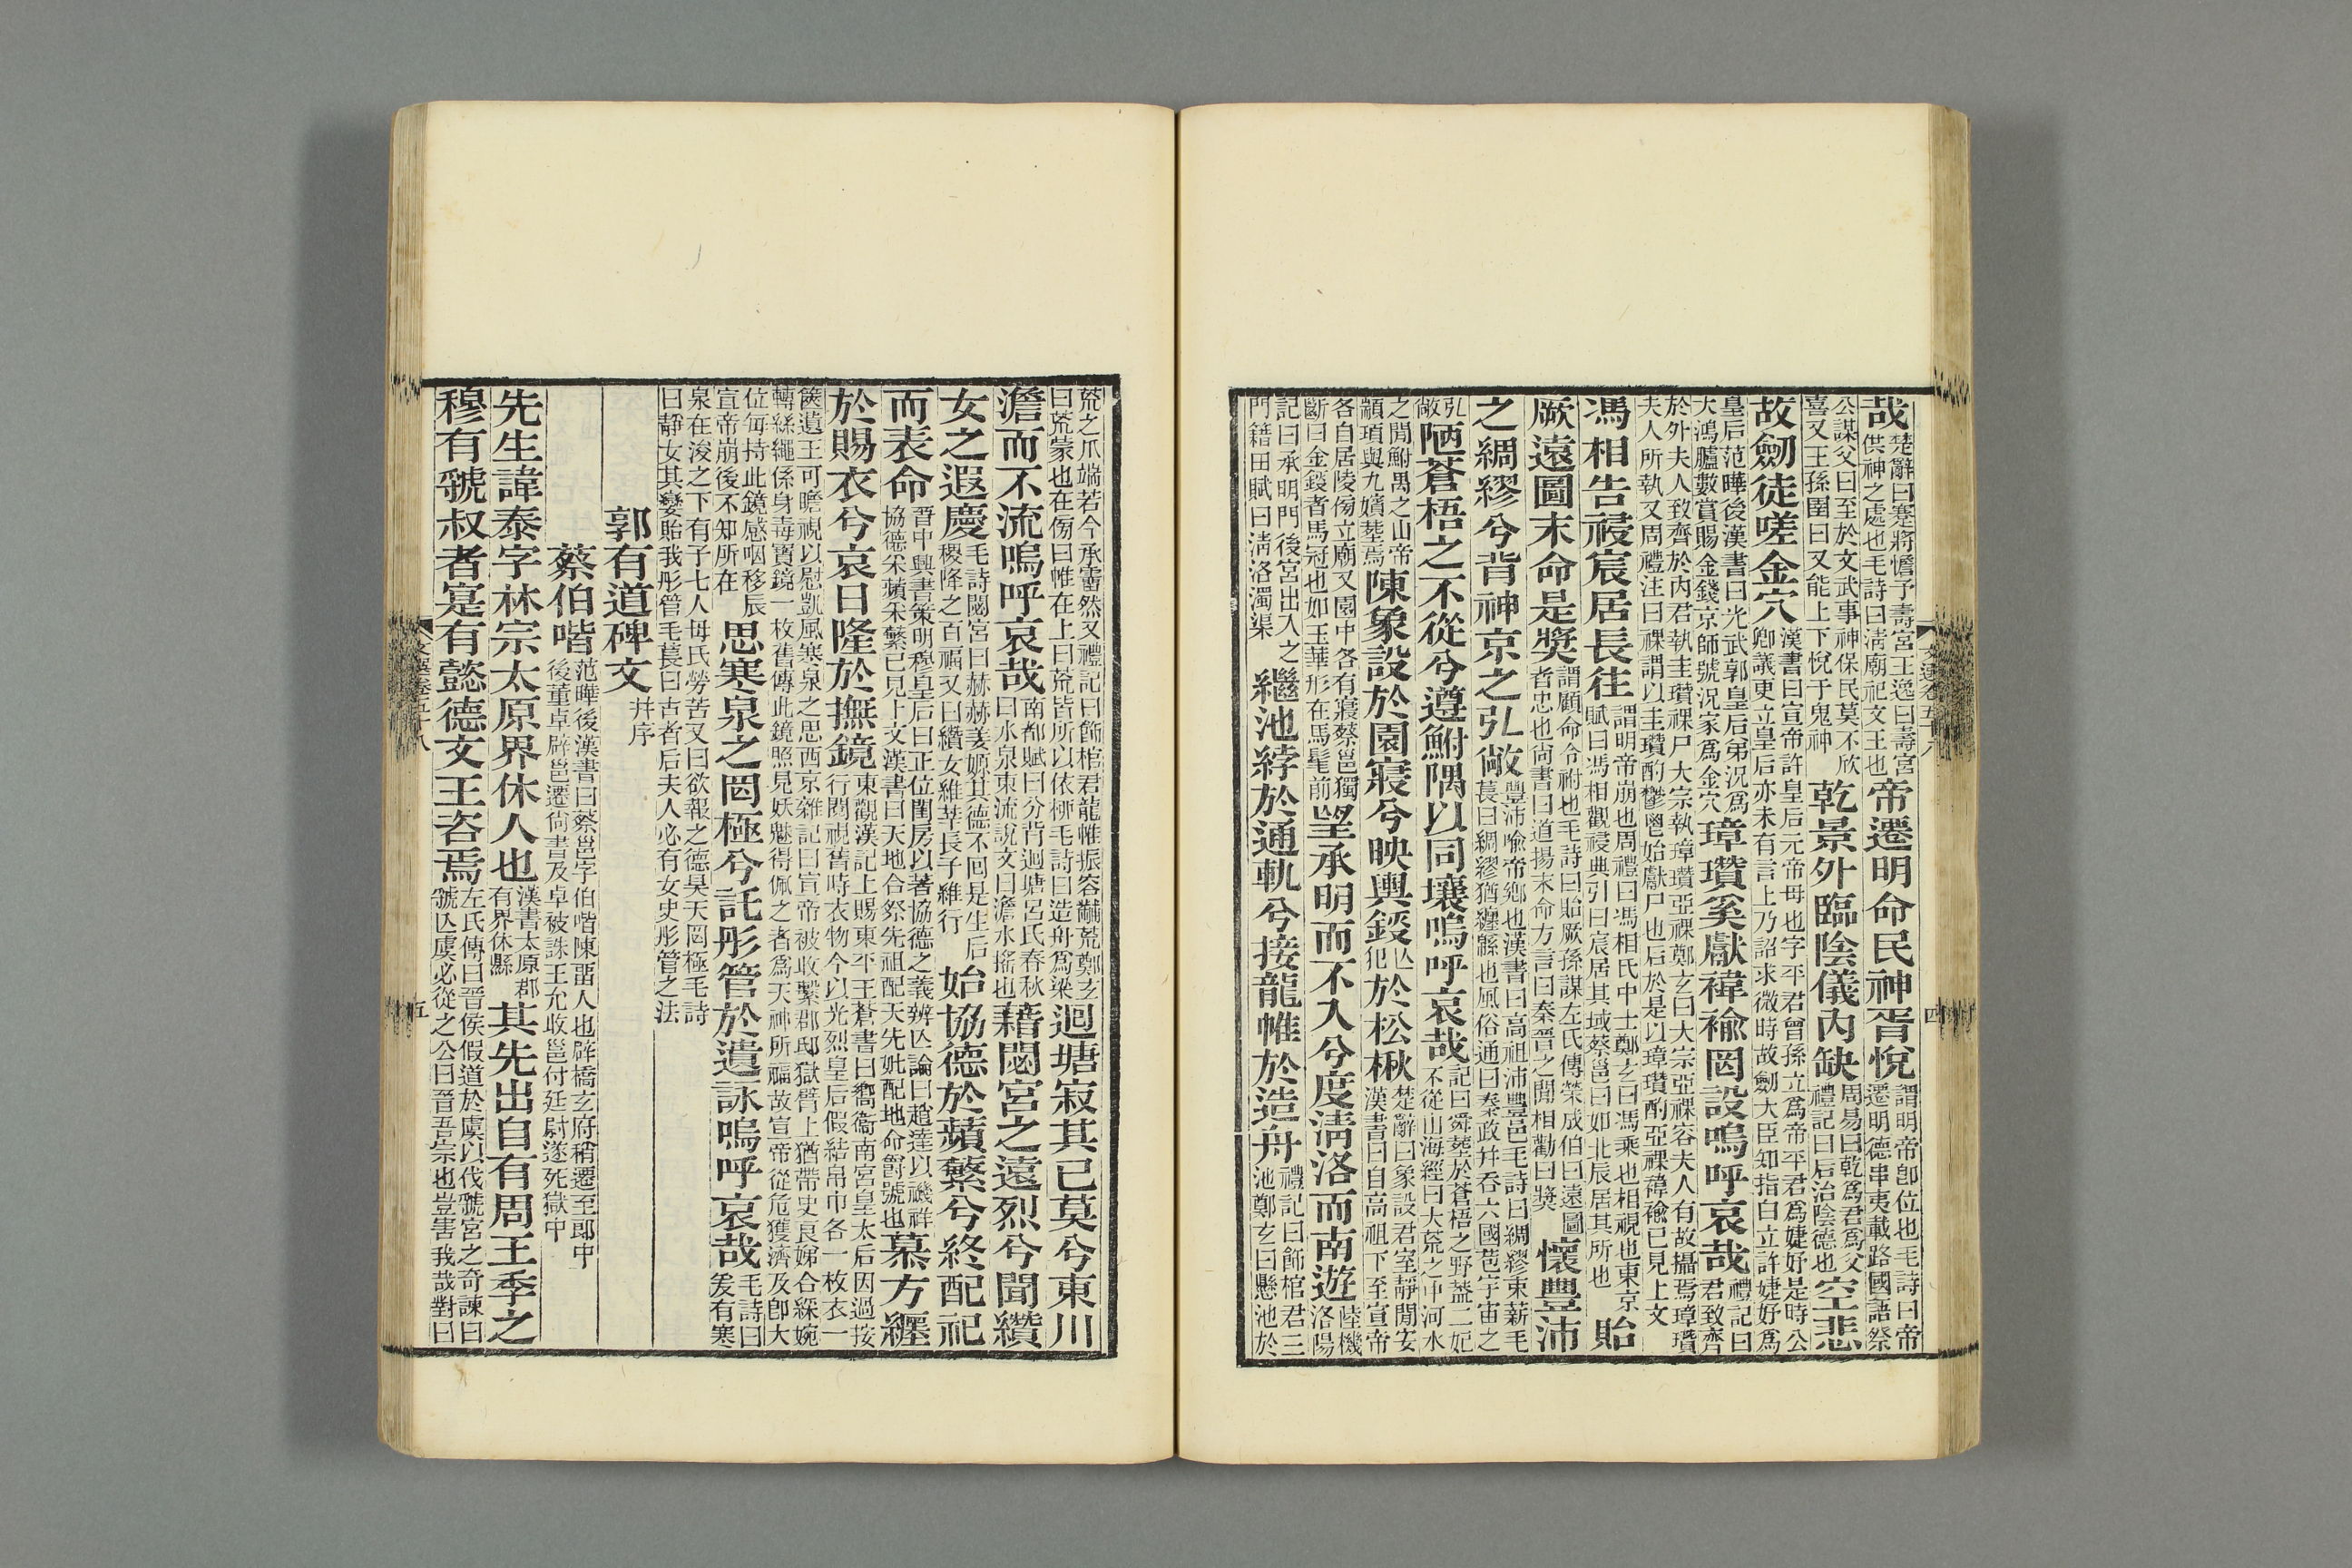 哉楚辭曰蹇將憺予壽宮王逸曰壽宮供神之處也毛詩曰淸廟祀文王也帝遷明命民神胥悅謂明帝卽位也毛詩曰帝遷明德串夷載路國語祭
公謀父曰至於文武事神保民莫不欣喜又王孫圉曰又能上下悅于鬼神乾景外臨陰儀內缺周易曰乾爲君爲父禮記曰后治陰德也空悲
故劒徒嗟金穴漢書曰宣帝許皇后元帝母也字平君曾孫立爲帝平君爲婕妤是時公卿議更立皇后亦未有言上乃詔求微時故劒大臣知指白立許婕妤爲
皇后范曄後漢書曰光武郭皇后弟況爲大鴻臚數賞賜金錢京師號況家爲金穴璋瓚奚獻褘褕罔設嗚呼哀哉禮記曰君致齊
於外夫人致齊於內君執圭瓚祼尸大宗執璋瓚亞祼鄭玄曰大宗亞祼容夫人有故攝焉璋瓚夫人所執又周禮注曰祼謂以圭瓚酌鬱鬯始獻尸也后於是以璋瓚酌亞祼褘褕已見上文
馮相告祲宸居長往謂明帝崩也周禮曰馮相氏中士鄭玄曰馮乘也相視也東京賦曰馮相觀祲典引曰宸居其域蔡邕曰如北辰居其所也貽
厥遠圖末命是奬謂顧命令祔也毛詩曰貽厥孫謀左氏傳榮成伯曰遠圖者忠也尙書曰道揚末命方言曰秦晉之閒相勸曰奬懷豐沛
之綢繆兮背神京之弘敞豐沛喻帝鄕也漢書曰高祖沛豐邑毛詩曰綢繆束薪毛萇曰綢繆猶纏緜也風俗通曰秦政幷吞六國苞宇宙之
弘敞陋蒼梧之不從兮遵鮒隅以同壤嗚呼哀哉記曰舜葬於蒼梧之野葢二妃不從山海經曰大荒之中河水
之閒鮒禺之山帝顓頊與九嬪葬焉陳象設於園寢兮映輿鍐亾犯於松楸楚辭曰象設君室靜閒安漢書曰自高祖下至宣帝
各自居陵傍立廟又園中各有寢蔡邕獨斷曰金鍐者馬冠也如玉華形在馬髦前望承明而不入兮度淸洛而南遊陸機洛陽
記曰承明門後宮出入之門籍田賦曰淸洛濁渠繼池綍於通軌兮接龍帷於造舟禮記曰飾棺君三池鄭玄曰懸池於
荒之爪端若今承霤然又禮記曰飾棺君龍帷振容黼荒鄭玄曰荒蒙也在傍曰帷在上曰荒皆所以依栁毛詩曰造舟爲梁迴塘寂其已莫兮東川
澹而不流嗚呼哀哉南都賦曰分背迴塘呂氏春秋曰水泉東流說文曰澹水搖也藉閟宮之遠烈兮聞纘
女之遐慶毛詩閟宮曰赫赫姜嫄其德不回是生后稷降之百福又曰纘女維莘長子維行始協德於蘋蘩兮終配祀
而表命晉中興書策明穆皇后曰正位閨房以著協德之義辨亾論曰趙達以禨祥協德采蘋采蘩已見上文漢書曰天地合祭先祖配天先妣配地命爵號也慕方纒
於賜衣兮哀日隆於撫鏡東觀漢記上賜東平王蒼書曰嚮衞南宮皇太后因過按行閱視舊時衣物今以光烈皇后假結帛巾各一枚衣一
篋遺王可瞻視以慰凱風寒泉之思西京雜記曰宣帝被收繫郡邸獄臂上猶帶史良娣合綵婉轉絲繩係身毒寶鏡一枚舊傳此鏡照見妖魅得佩之者爲天神所福故宣帝從危獲濟及卽大
位每持此鏡感咽移辰宣帝崩後不知所在思寒泉之罔極兮託彤管於遺詠嗚呼哀哉毛詩曰爰有寒
泉在浚之下有子七人母氏勞苦又曰欲報之德昊天罔極毛詩曰靜女其孌貽我彤管毛萇曰古者后夫人必有女史彤管之法
郭有道碑文幷序
蔡伯喈范曄後漢書曰蔡邕字伯喈陳畱人也辟橋玄府稍遷至郎中後董卓辟邕遷尙書及卓被誅王允收邕付廷尉遂死獄中
先生諱泰字林宗太原界休人也漢書太原郡有界休縣其先出自有周王季之
穆有虢叔者寔有懿德文王咨焉左氏傳曰晉侯假道於虞以伐虢宮之奇諫曰虢亾虞必從之公曰晉吾宗也豈害我哉對曰
文選卷五十八
四
文選卷五十八
五